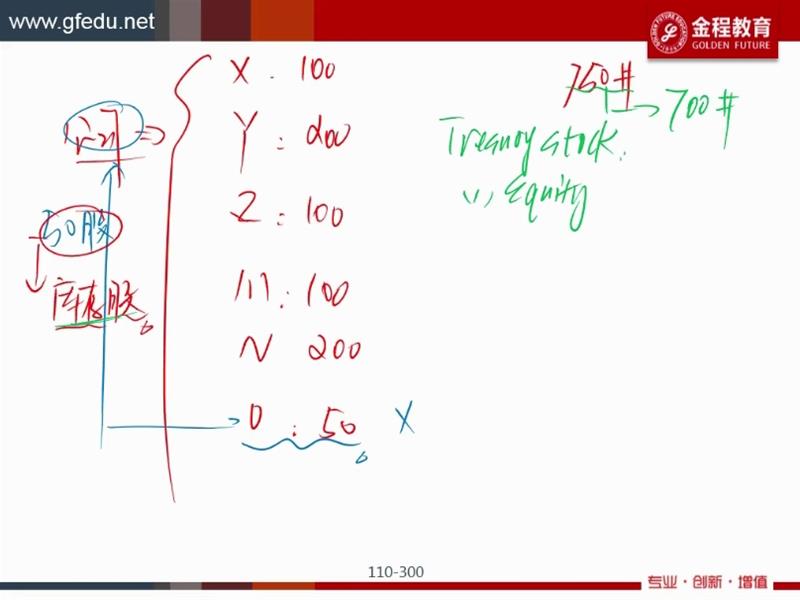 www.gfedu.net
金程教育
GOLDEN FUTURE
X : 100
750#
700#
Y : 200
Treasury stock.
Z : 100
(1) Equity
50股
M : 100
库存股
N 200
O : 50 X
110-300
专业·创新·增值